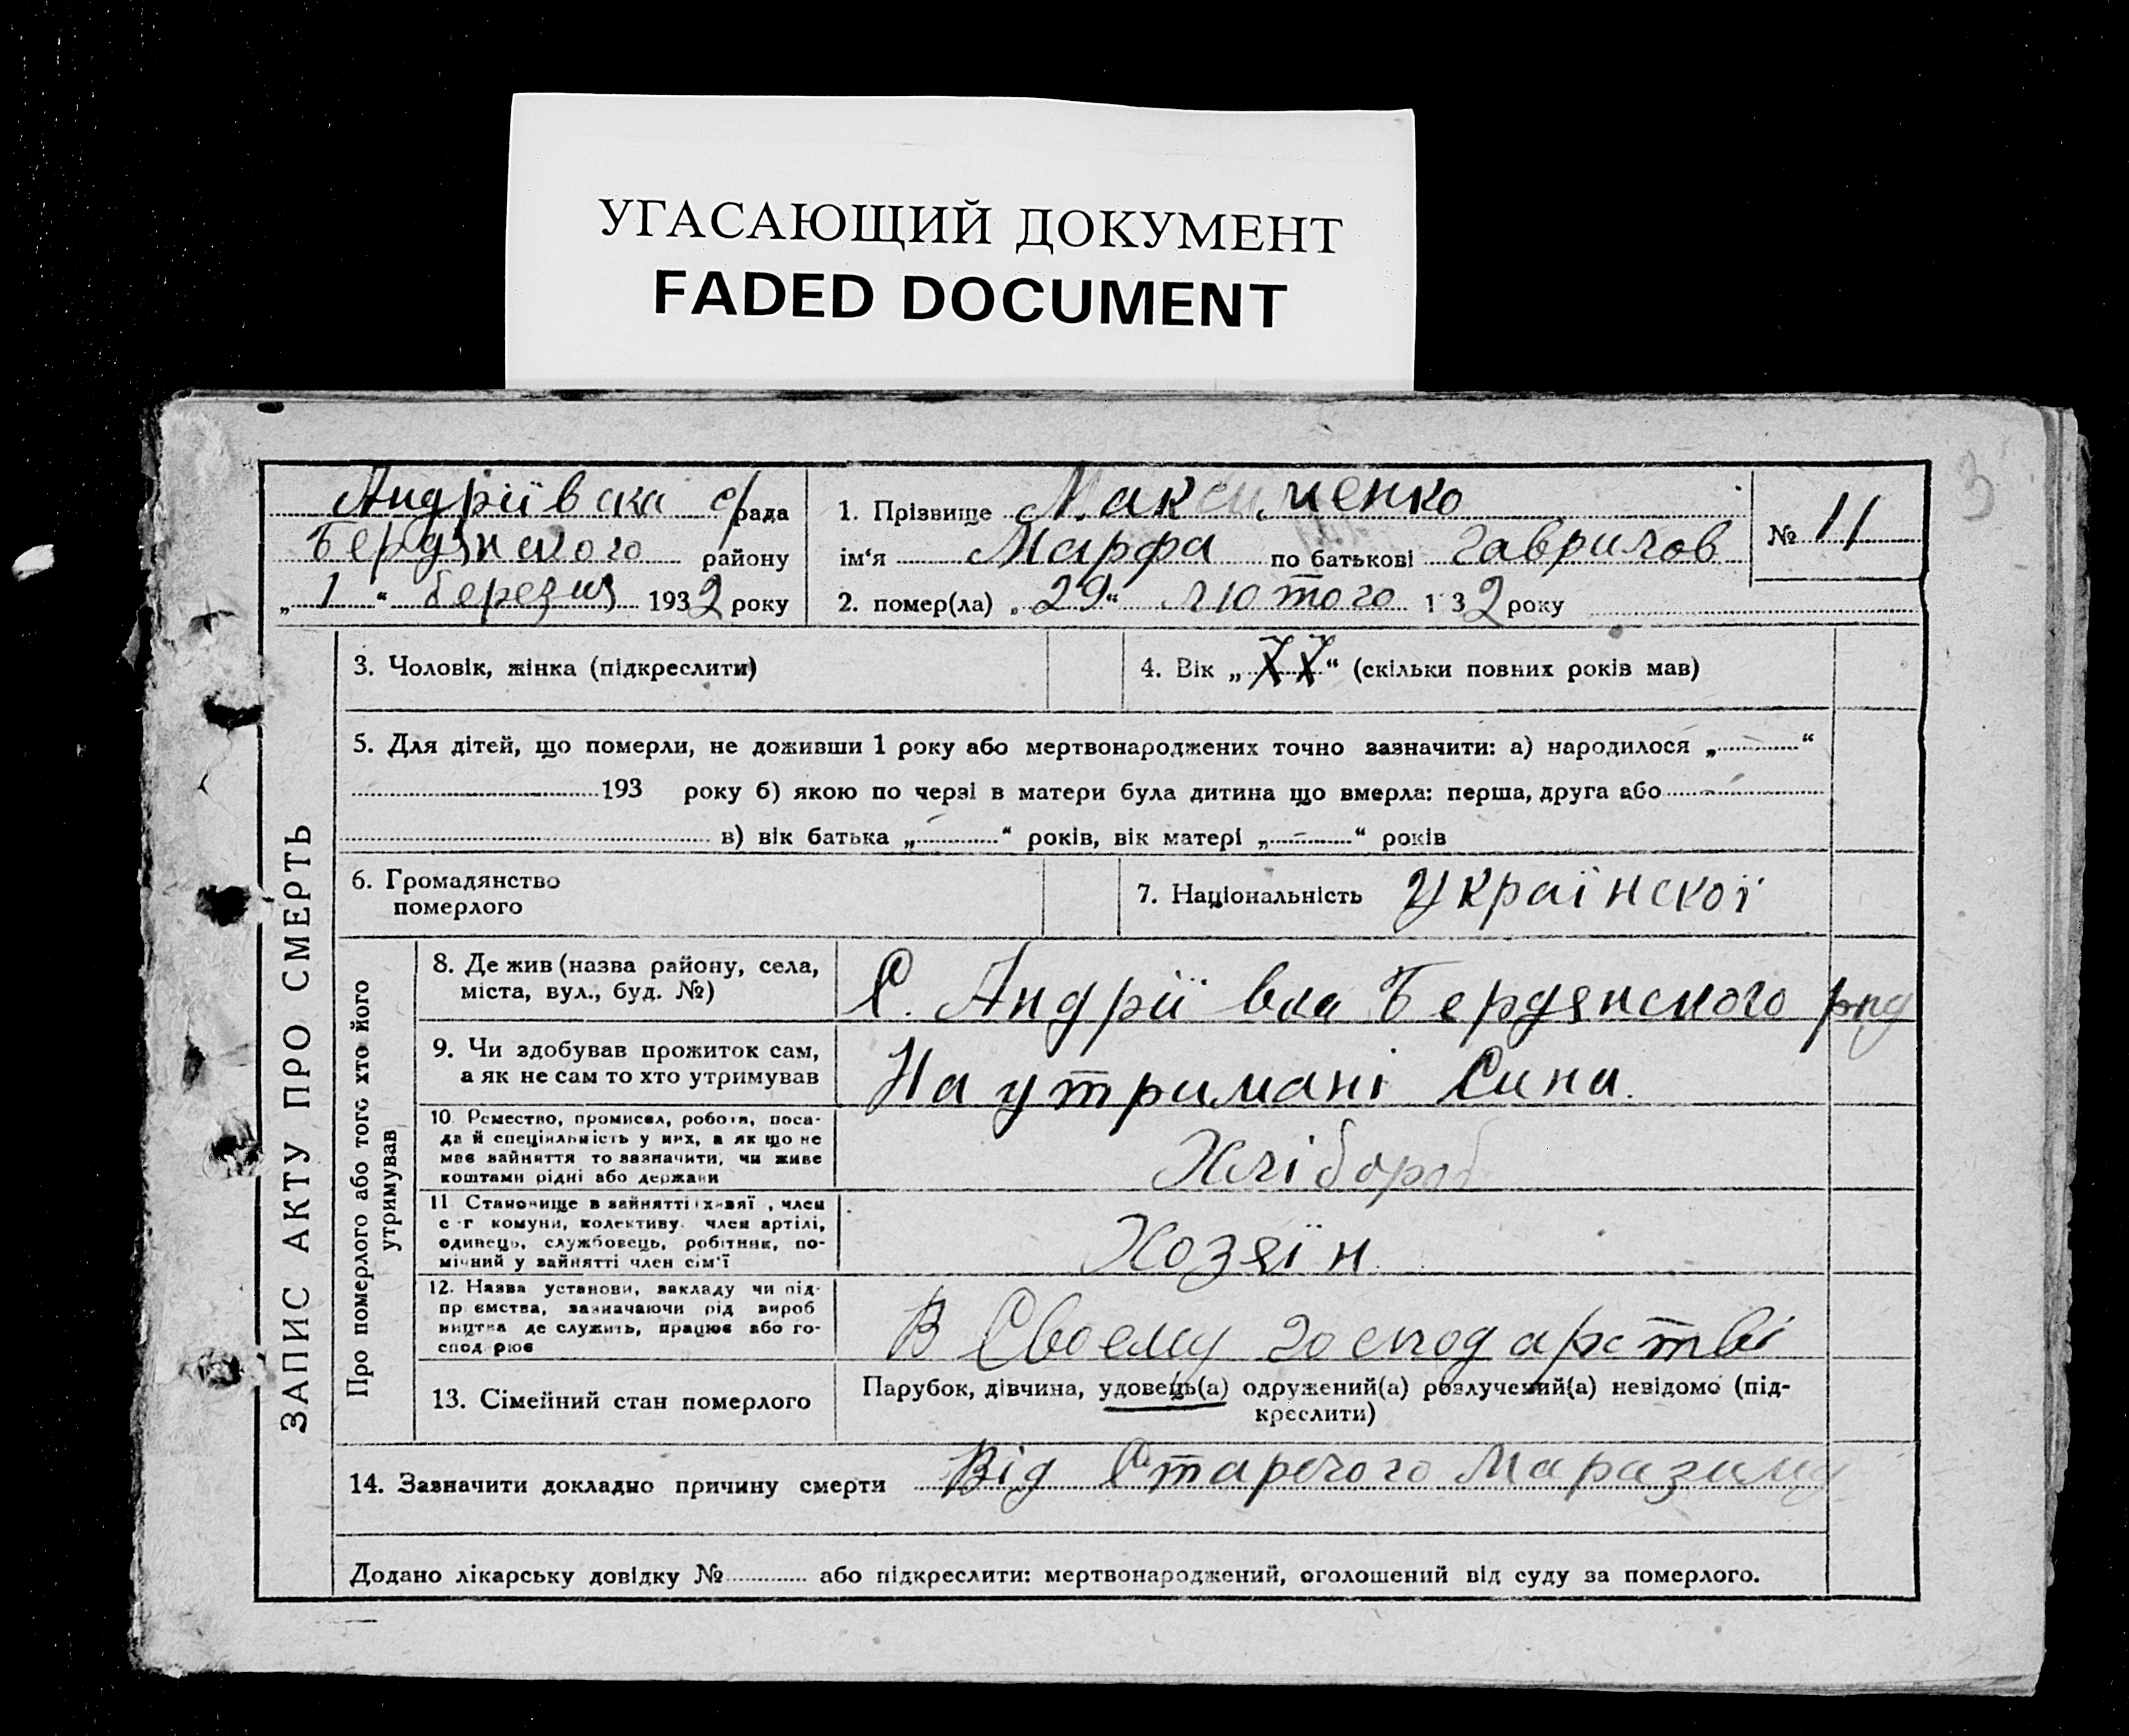 УГАСАЮЩИЙ ДОКУМЕНТ
FADED DOCUMENT
3
Андріївска с/рада
Бердянского району
„1“ березня 1932 року
1. Прізвище Максименко
ім'я Марфа по батькові Гаврилов
2. помер(ла) „29“ лютого 1 32 року
№ 11
ЗАПИС АКТУ ПРО СМЕРТЬ
3. Чоловік, жінка (підкреслити)
4. Вік „77“ (скільки повних років мав)
5. Для дітей, що померли, не доживши 1 року або мертвонароджених точно зазначити: а) народилося „ “
193 року б) якою по черзі в матери була дитина що вмерла: перша, друга або
в) вік батька „ “ років, вік матері „ “ років
6. Громадянство
померлого
7. Національність Української
Про померлого або того хто його
утримував
8. Де жив (назва району, села,
міста, вул., буд. №)
С. Андріївка Бердянского
9. Чи здобував прожиток сам,
а як не сам то хто утримував
На утримані Сина.
10 Ремество, промисел, робота, поса-
да й спеціяльність у них, а як що не
має зайняття то зазначити, чи живе
коштами рідні або держави
Хлібороб
11 Становище в зайнятті хазяї , член
с-г комуни, колективу член артілі,
одинець, службовець, робітник, по-
мічний у зайнятті член сім'ї
Хозяїн
12. Назва установи, закладу чи під-
пр ємства, зазначаючи рід вироб
ництва де служить, працює або го-
спод рює
В Своему господарстві
13. Сімейний стан померлого
Парубок, дівчина, удовець(а) одружений(а) розлучений(а) невідомо (під-
креслити)
14. Зазначити докладно причину смерти Від Старчого Маразиму
Додано лікарську довідку № або підкреслити: мертвонароджений, оголошений від суду за померлого.